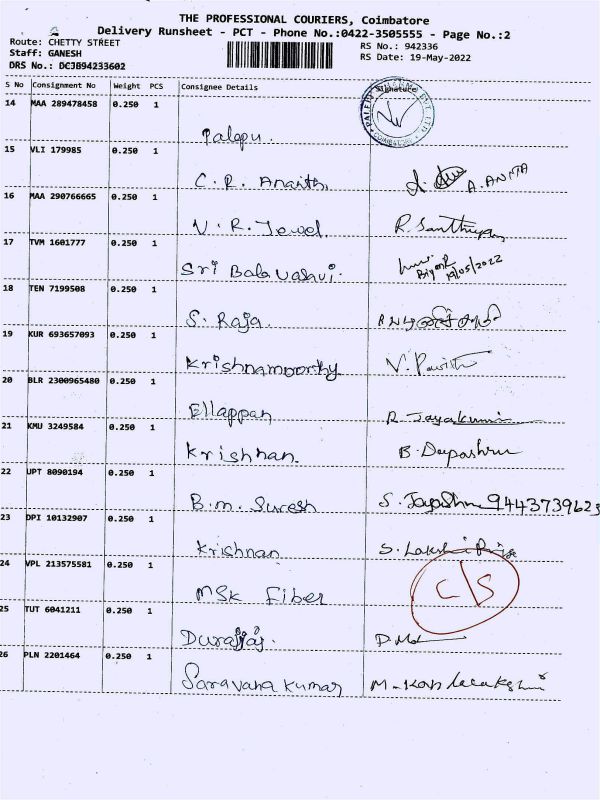 THE PROFESSIONAL COURIERS, Coimbatore
Delivery Runsheet - PCT - Phone No.:0422-3505555 - Page No.:2
Route: CHETTY STREET
RS No.: 942336
Staff: GANESH
RS Date: 19-May-2022
DRS No.: DCJB94233602
S No Consignment No Weight PCS Consignee Details Signature
14 MAA 289478458 0.250 1
Palepu.
COIMBATORE
15 VLI 179985 0.250 1
C. R. Ananth, A. ANITA
16 MAA 290766665 0.250 1
V. R. Jewel
17 TVM 1601777 0.250 1
Sri Bala vasavi. 19/05/2022
18 TEN 7199508 0.250 1
S. Raja.
19 KUR 693657093 0.250 1
Krishnamoorthy V. Pavith
20 BLR 2300965480 0.250 1
Ellappan R. Jayakumar
21 KMU 3249584 0.250 1
Krishnan. B.
22 UPT 8090194 0.250 1
B.m. Suresh S. 9443739623
23 DPI 10132907 0.250 1
Krishnan S. Lakshmi Priya
24 VPL 213575581 0.250 1
MSK Fiber C/S
25 TUT 6041211 0.250 1
Durairaj.
26 PLN 2201464 0.250 1
Saravana Kumar